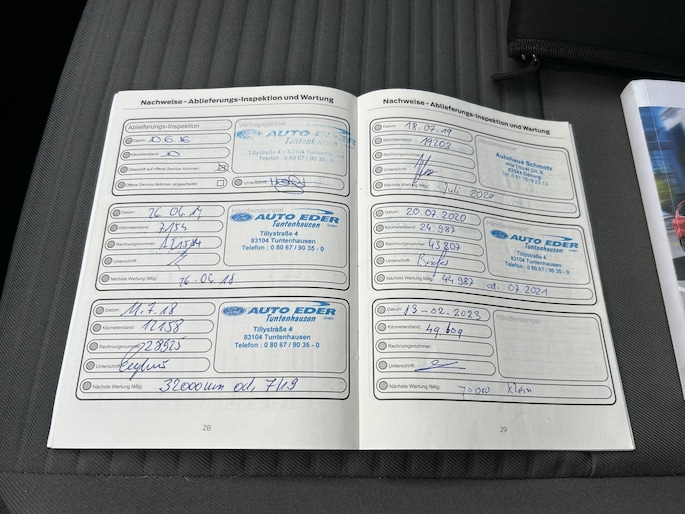 Nachweise - Ablieferungs-Inspektion und Wartung
Ablieferungs-Inspektion
Vertragspartner
Datum:
Kilometerstand: 30
Überprüft auf offene Service Aktionen
Offene Service-Aktionen abgearbeitet
Unterschrift:
Ford AUTO EDER
Tuntenhausen GmbH
Tillystraße 4 - 83104 Tuntenhausen
Telefon : 0 80 67 / 90 35 - 0
Händlerstempel
Datum: 26.06.17
Kilometerstand: 7154
Rechnungsnummer:
Unterschrift:
Nächste Wartung fällig:
Ford AUTO EDER
Tuntenhausen GmbH
Tillystraße 4
83104 Tuntenhausen
Telefon : 0 80 67 / 90 35 - 0
Datum: 11.7.18
Kilometerstand: 12158
Rechnungsnummer: 28925
Unterschrift:
Nächste Wartung fällig: 32000km od. 7/19
Ford AUTO EDER
Tuntenhausen GmbH
Tillystraße 4
83104 Tuntenhausen
Telefon : 0 80 67 / 90 35 - 0
28
Nachweise - Ablieferungs-Inspektion und Wartung
Datum: 18.07.19
Kilometerstand: 19202
Rechnungsnummer:
Unterschrift:
Nächste Wartung fällig: Juli 2020
Autohaus Schmotz
Datum: 20.07.2020
Kilometerstand: 24.987
Rechnungsnummer: 43807
Unterschrift:
Nächste Wartung fällig: 44.987 od. 07.2021
Händlerstempel
Ford AUTO EDER
Tuntenhausen GmbH
Tillystraße 4
83104 Tuntenhausen
Telefon : 0 80 67 / 90 35 - 0
Datum: 13-02.2023
Kilometerstand: 49.609
Rechnungsnummer:
Unterschrift:
Nächste Wartung fällig: 70000 Klein
Händlerstempel
29